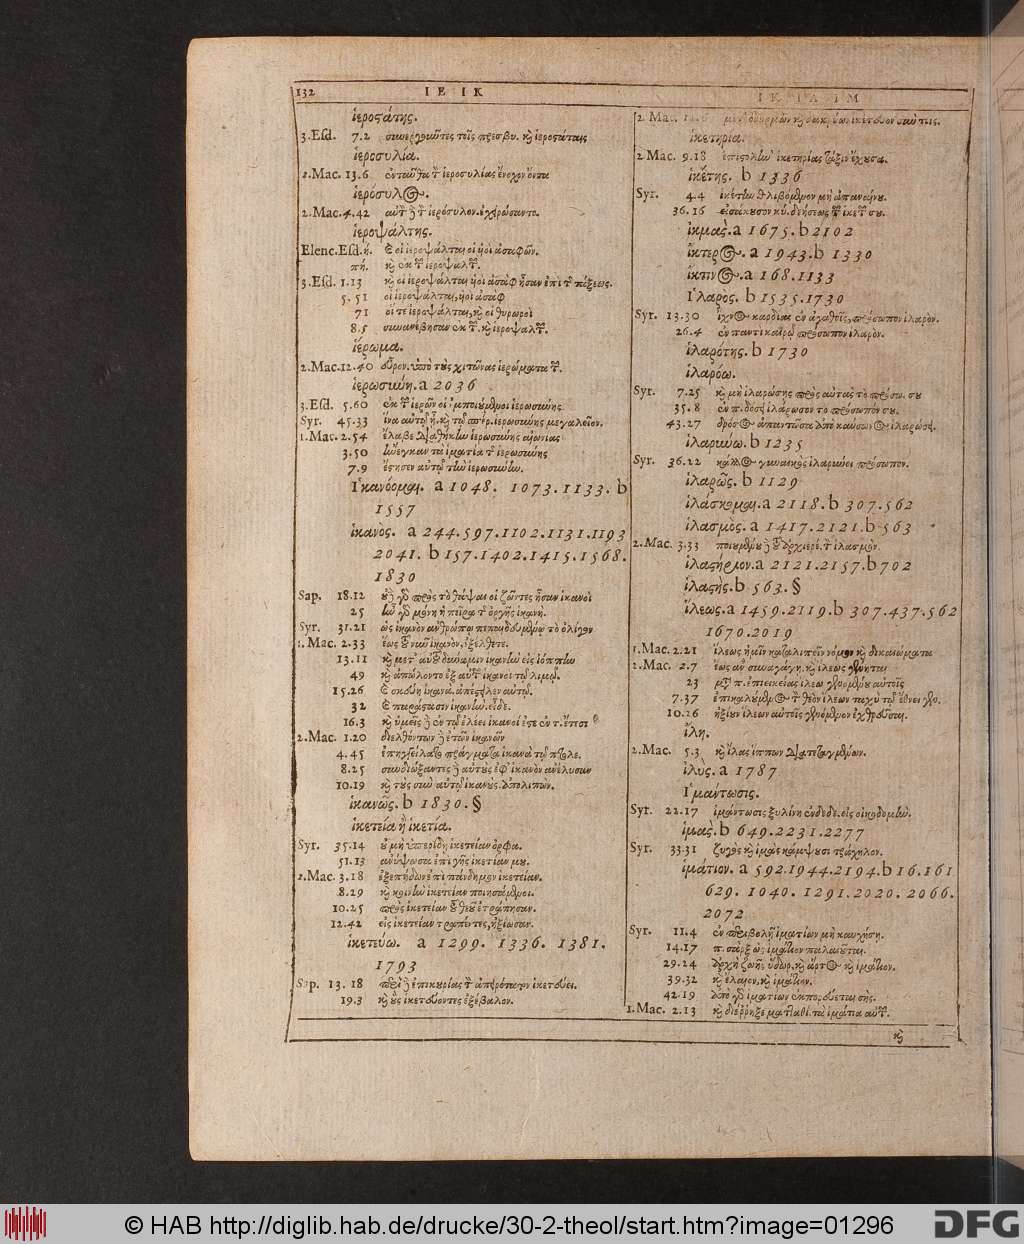 132 ΙΕ ΙΚ
ἱεροστάτης.
3.Esd. 7.2 συνεργοῦντες τοῖς πρεσβυ. καὶ ἱεροστάταις
ἱεροσυλία.
2.Mac. 13.6 ἐνταῦθα τ ἱεροσυλίας ἔνοχον ὄντα
ἱερόσυλος.
2.Mac. 4.42 αὐτ ἱερόσυλον ἐχειρώσαντο.
ἱεροψάλτης.
Elenc.Esd.ή. οἱ ἱεροψάλται οἱ υἱοὶ ἀσαφῶν.
πή. καὶ ἐκ τ ἱεροψαλτ.
3.Esd. 1.13 καὶ οἱ ἱεροψάλται υἱοὶ ἀσὰφ ἦσαν ἐπὶ τ τάξεως.
5.51 οἱ ἱεροψάλται, υἱοὶ ἀσαφ
71 οἱ τε ἱεροψάλται, καὶ οἱ θυρωροὶ
8.5 συνανέβησαν ἐκ τ. καὶ ἱεροψαλτ.
ἱέρωμα.
2.Mac. 12.40 εὗρον ὑπὸ τοὺς χιτῶνας ἱερώματα τ.
ἱερωσύνη. a 2036
3.Esd. 5.60 ἐκ τ ἱερῶν οἱ ἐμποιούμενοι ἱερωσύνης
Syr. 45.33 ἵνα αὐτῷ ᾖ, καὶ τῷ σπέρ. ἱερωσύνης μεγαλεῖον.
1.Mac. 2.54 ἔλαβε διαθήκην ἱερωσύνης αἰωνίας
3.50 ἤνεγκαν τὰ ἱμάτια τ ἱερωσύνης
7.9 ἔστησεν αὐτῷ τὴν ἱερωσύνην.
Ἱκανόομαι. a 1048. 1073. 1133. b
1557
ἱκανὸς. a 244.597.1102.1131.1193
2041. b 157.1402.1415.1568.
1830
Sap. 18.12 οὐ γὰρ πρὸς τὸ θάψαι οἱ ζῶντες ἦσαν ἱκανοὶ
25 ἦν γὰρ μόνη ἡ πεῖρα τ ὀργῆς ἱκανή.
Syr. 31.21 ὡς ἱκανὸν ἀνθρώπῳ πεπαιδευμένῳ τὸ ὀλίγον
1.Mac. 2.33 ἕως τοῦ νῦν ἱκανὸν, ἐξέλθετε.
13.11 καὶ μετ' αὐτοῦ δύναμιν ἱκανὴν εἰς ἰόππην
49 καὶ ἀπώλοντο ἐξ αὐτ ἱκανοὶ τῷ λιμῷ.
15.26 σκεύη ἱκανὰ. ἀπέστειλεν αὐτῷ.
32 παράστασιν ἱκανὴν. εἶδε.
16.3 καὶ ὑμεῖς ἐν τῷ ἐλέει ἱκανοί ἐστε ἐν τ. ἔτεσι
2.Mac. 1.20 διελθόντων ἐτῶν ἱκανῶν
4.45 ἐπηγγείλατο πράγματα ἱκανὰ τῷ πτολε.
8.25 συνδιώξαντες αὐτοὺς ἐφ' ἱκανὸν ἀνέλυσαν
10.19 καὶ τοὺς σὺν αὐτῷ ἱκανοὺς. ἀπολιπὼν.
ἱκανῶς. b 1830. §
ἱκετεία ἢ ἱκετία.
Syr. 35.14 οὐ μὴ ὑπερίδῃ ἱκετείαν ὀρφα.
51.13 ἀνύψωσα ἐπὶ γῆς ἱκετίαν μου.
2.Mac. 3.18 ἐξεπήδων ἐπὶ πάνδημον ἱκετείαν.
8.29 καὶ κοινὴν ἱκετείαν ποιησάμενοι.
10.25 πρὸς ἱκετείαν τοῦ θεοῦ ἐτράπησαν.
12.42 εἰς ἱκετείαν τραπέντες, ἠξίωσαν.
ἱκετεύω. a 1299. 1336. 1381.
1793
Sap. 13.18 περὶ ἐπικουρίας τ ἀπειρότατον ἱκετεύει.
19.3 καὶ οὓς ἱκετεύοντες ἐξέβαλον.
ΙΚ ΙΛ ΙΜ
2.Mac. μετ' ὀδυρμῶν καὶ δακρύων ἱκέτευον σὺν τοῖς.
ἱκετηρία.
2.Mac. 9.18 ἐπιστολὴν ἱκετηρίας τάξιν ἔχουσα.
ἱκέτης. b 1336
Syr. 4.4 ἱκέτην θλιβόμενον μὴ ἀπαναίνου.
36.16 εἰσάκουσον κύ. δεήσεως τ ἱκετ σου.
ἰκμὰς. a 1675. b 2102
ἴκτερος. a 1943. b 1330
ἴκτινος. a 168.1133
Ἱλαρὸς. b 1535.1730
Syr. 13.30 ἴχνος καρδίας ἐν ἀγαθοῖς, πρόσωπον ἱλαρὸν.
26.4 ἐν παντὶ καιρῷ πρόσωπον ἱλαρὸν.
ἱλαρότης. b 1730
ἱλαρόω.
Syr. 7.25 καὶ μὴ ἱλαρώσῃς πρὸς αὐτὰς τὸ πρόσω. σου
35.8 ἐν π. δόσει ἱλάρωσον τὸ πρόσωπόν σου.
43.27 δρόσος ἀπαντῶσα ἀπὸ καύσωνος ἱλαρώσει.
ἱλαρύνω. b 1235
Syr. 36.22 κάλλος γυναικὸς ἱλαρύνει πρόσωπον.
ἱλαρῶς. b 1129
ἱλάσκομαι. a 2118. b 307.562
ἱλασμὸς. a 1417.2121. b 563
2.Mac. 3.33 ποιουμένου τοῦ ἀρχιερέ. τ ἱλασμὸν.
ἱλαστήριον. a 2121.2157. b 702
ἱλαστὴς. b 563. §
ἵλεως. a 1459.2119. b 307.437.562
1670.2019
1.Mac. 2.21 ἵλεως ἡμῖν καταλιπεῖν νόμον καὶ δικαιώματα
2.Mac. 2.7 ἕως ἂν συναγάγῃ. καὶ ἵλεως γένηται
23 μετὰ π. ἐπιεικείας ἵλεω γενομένου αὐτοῖς
7.37 ἐπικαλούμενος τ θεὸν ἵλεων ταχὺ τῷ ἔθνει γενο.
10.26 ἠξίουν ἵλεων αὐτοῖς γενόμενον ἐχθρεῦσαι.
ἴλη.
2.Mac. 5.3 καὶ ἴλας ἵππων διατεταγμένων.
ἰλὺς. a 1787
Ἱμάντωσις.
Syr. 22.17 ἱμάντωσις ξυλίνη ἐνδεδε. εἰς οἰκοδομὴν.
ἱμὰς. b 649.2231.2277
Syr. 33.31 ζυγὸς καὶ ἱμὰς κάμψουσι τράχηλον.
ἱμάτιον. a 592.1944.2194. b 16.161
629. 1040. 1291.2020. 2066.
2072
Syr. 11.4 ἐν περιβολῇ ἱματίων μὴ καυχήσῃ.
14.17 π. σὰρξ ὡς ἱμάτιον παλαιοῦται.
29.24 ἀρχὴ ζωῆς ὕδωρ, καὶ ἄρτος καὶ ἱμάτιον.
39.32 καὶ ἔλαιον, καὶ ἱμάτιον.
42.19 ἀπὸ γὰρ ἱματίων ἐκπορεύεται σὴς.
1.Mac. 2.13 καὶ διέρρηξε ματταθί. τὰ ἱμάτια αὐτ.
καὶ
© HAB http://diglib.hab.de/drucke/30-2-theol/start.htm?image=01296
DFG